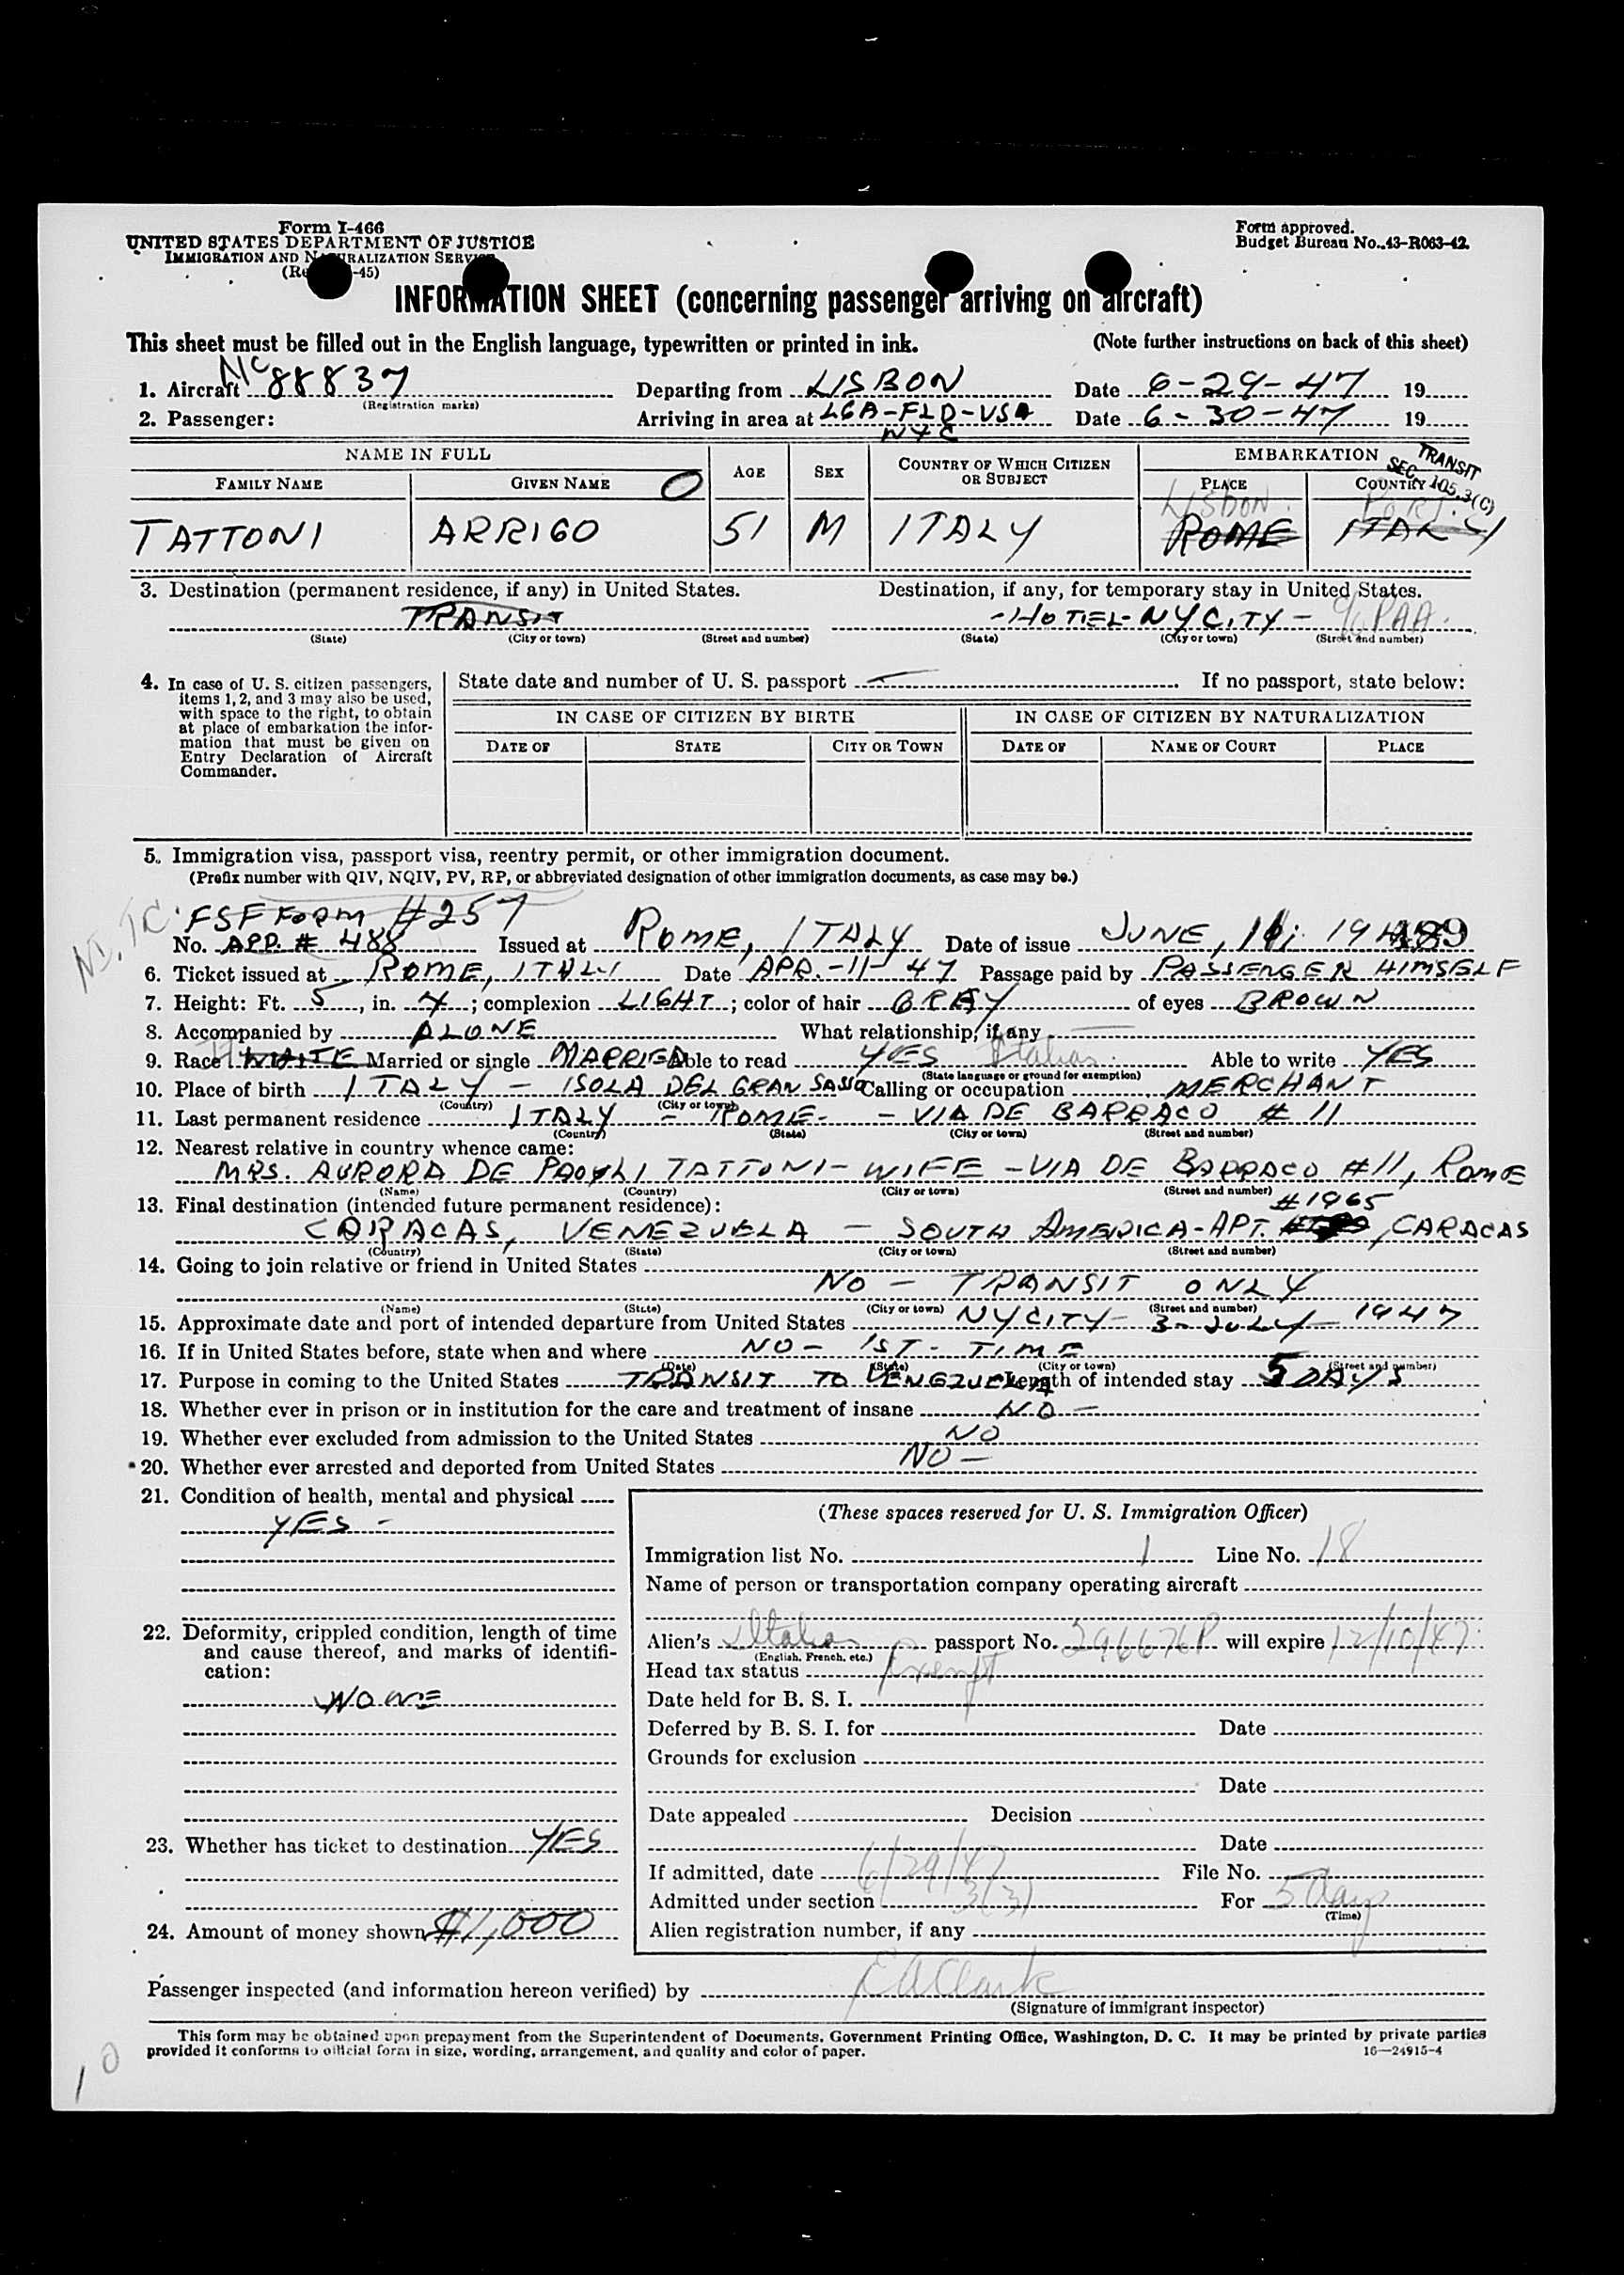 Form I-466
UNITED STATES DEPARTMENT OF JUSTICE
IMMIGRATION AND NATURALIZATION SERVICE
-45)
Form approved.
Budget Bureau No. 43-R063-42.
INFORMATION SHEET (concerning passenger arriving on aircraft)
This sheet must be filled out in the English language, typewritten or printed in ink. (Note further instructions on back of this sheet)
1. Aircraft NC 88837 Departing from LISBON Date 6-29-47 19
(Registration marks)
2. Passenger: Arriving in area at LGA-FLD-USA Date 6-30-47 19
NYC
NAME IN FULL AGE SEX COUNTRY OF WHICH CITIZEN OR SUBJECT EMBARKATION
TRANSIT SEC 105.3(C)
FAMILY NAME GIVEN NAME O PLACE COUNTRY
LISBON PORT.
TATTONI ARRIGO 51 M ITALY ROME ITALY
3. Destination (permanent residence, if any) in United States. Destination, if any, for temporary stay in United States.
TRANSIT -HOTEL-NYCITY- c/o PAA.
(State) (City or town) (Street and number) (State) (City or town) (Street and number)
4. In case of U. S. citizen passengers, items 1, 2, and 3 may also be used, with space to the right, to obtain at place of embarkation the information that must be given on Entry Declaration of Aircraft Commander.
State date and number of U. S. passport — If no passport, state below:
IN CASE OF CITIZEN BY BIRTH IN CASE OF CITIZEN BY NATURALIZATION
DATE OF STATE CITY OR TOWN DATE OF NAME OF COURT PLACE
5. Immigration visa, passport visa, reentry permit, or other immigration document.
(Prefix number with QIV, NQIV, PV, RP, or abbreviated designation of other immigration documents, as case may be.)
FSF FORM #257
No. APP. # 488 Issued at ROME, ITALY Date of issue JUNE,
6. Ticket issued at ROME, ITALY Date APR.-11-47 Passage paid by PASSENGER HIMSELF
7. Height: Ft. 5, in. 4; complexion LIGHT; color of hair GRAY of eyes BROWN
8. Accompanied by ALONE What relationship, if any —
9. Race WHITE Married or single MARRIED Able to read YES Italian Able to write YES
(State language or ground for exemption)
10. Place of birth ITALY - ISOLA DEL GRAN SASSO Calling or occupation MERCHANT
(Country) (City or town)
11. Last permanent residence ITALY - ROME- - VIA DE BARRACO # 11
(Country) (State) (City or town) (Street and number)
12. Nearest relative in country whence came:
MRS. AURORA DE PAOLI TATTONI - WIFE - VIA DE BARRACO #11, ROME
(Name) (Country) (City or town) (Street and number)
13. Final destination (intended future permanent residence): #1965
CARACAS, VENEZUELA - SOUTH AMERICA-APT. , CARACAS
(Country) (State) (City or town) (Street and number)
14. Going to join relative or friend in United States
NO - TRANSIT ONLY
(Name) (State) (City or town) (Street and number)
15. Approximate date and port of intended departure from United States NYCITY- 3-JULY- 1947
16. If in United States before, state when and where NO - 1ST - TIME
(Date) (State) (City or town) (Street and number)
17. Purpose in coming to the United States TRANSIT TO VENEZUELA Length of intended stay 5 DAYS
18. Whether ever in prison or in institution for the care and treatment of insane NO -
19. Whether ever excluded from admission to the United States NO
20. Whether ever arrested and deported from United States NO -
21. Condition of health, mental and physical
YES -
22. Deformity, crippled condition, length of time and cause thereof, and marks of identification:
NONE
23. Whether has ticket to destination YES
24. Amount of money shown $1,000
(These spaces reserved for U. S. Immigration Officer)
Immigration list No. 1 Line No. 18
Name of person or transportation company operating aircraft
Alien's Italian passport No. 296676P will expire 12/10/47
(English, French, etc.)
Head tax status Exempt
Date held for B. S. I.
Deferred by B. S. I. for Date
Grounds for exclusion
Date
Date appealed Decision
Date
If admitted, date 6/29/47 File No.
Admitted under section 3(3) For 5 days
(Time)
Alien registration number, if any
Passenger inspected (and information hereon verified) by E A Clark
(Signature of immigrant inspector)
This form may be obtained upon prepayment from the Superintendent of Documents, Government Printing Office, Washington, D. C. It may be printed by private parties
provided it conforms to official form in size, wording, arrangement, and quality and color of paper. 16—24915-4
10